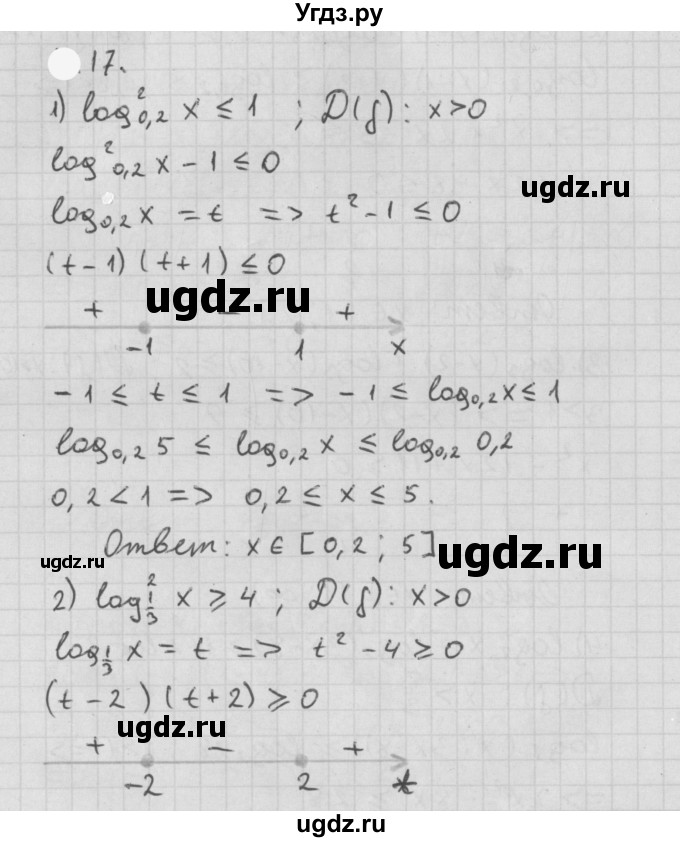 Угдз.ру
17.
1) log²₀,₂ x ≤ 1 ; D(f): x>0
log²₀,₂ x − 1 ≤ 0
ugdz.ru
log₀,₂ x = t => t² − 1 ≤ 0
(t − 1) (t + 1) ≤ 0
ugdz.ru
+ − +
−1 1 x
−1 ≤ t ≤ 1 => −1 ≤ log₀,₂ x ≤ 1
log₀,₂ 5 ≤ log₀,₂ x ≤ log₀,₂ 0,2
0,2 < 1 => 0,2 ≤ x ≤ 5.
Ответ: x ∈ [0,2 ; 5]
ugdz.ru ugdz.ru
2) log²_{1/3} x ≥ 4 ; D(f): x>0
log_{1/3} x = t => t² − 4 ≥ 0
(t − 2) (t + 2) ≥ 0
ugdz.ru
+ − +
−2 2
ugdz.ru